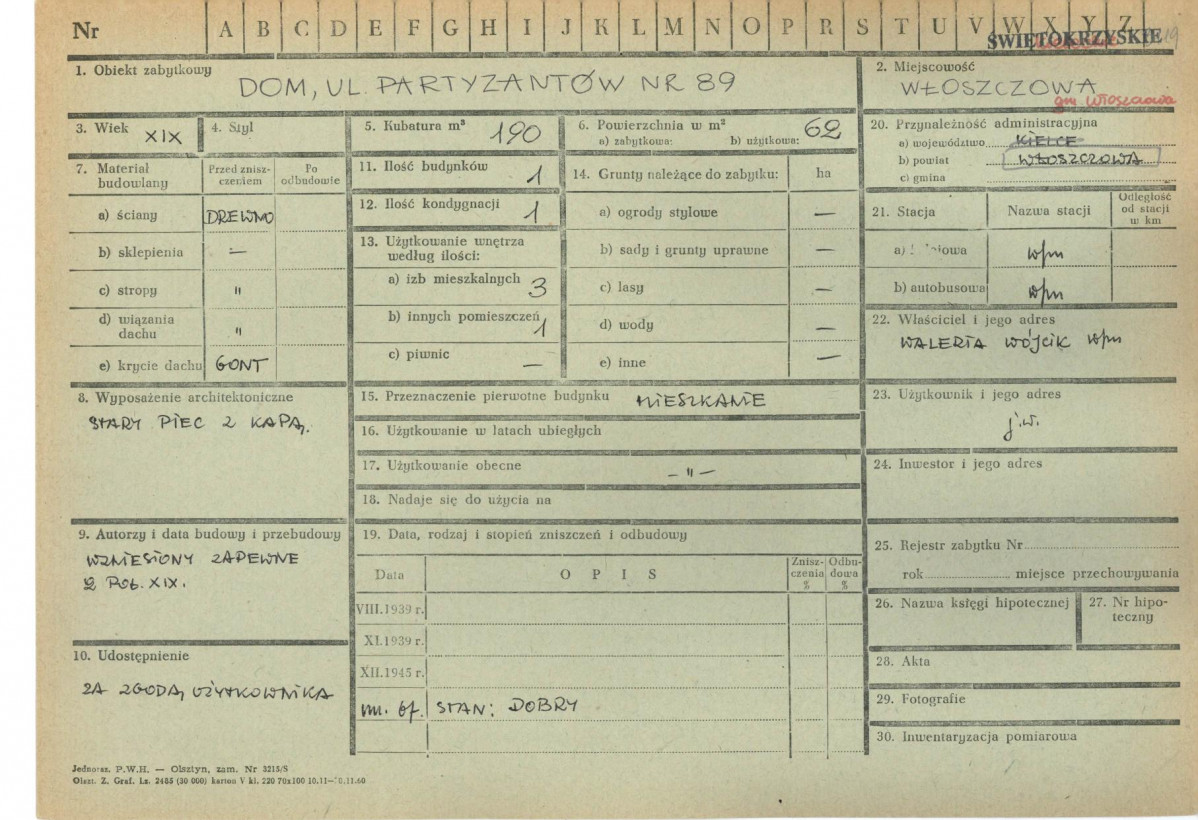 Nr A B C D E F G H I J K L M N O P R S T U V W X Y Z
ŚWIĘTOKRZYSKIE
1. Obiekt zabytkowy
DOM, UL. PARTYZANTÓW NR 89
2. Miejscowość
WŁOSZCZOWA
gm. Włoszczowa
3. Wiek XIX
4. Styl
5. Kubatura m³ 190
6. Powierzchnia w m²
a) zabytkowa: b) użytkowa: 62
20. Przynależność administracyjna
a) województwo KIELCE
b) powiat WŁOSZCZOWA
c) gmina
7. Materiał budowlany
Przed znisz-
czeniem
Po
odbudowie
a) ściany DREWNO
b) sklepienia —
c) stropy "
d) wiązania
dachu "
e) krycie dachu GONT
11. Ilość budynków 1
12. Ilość kondygnacji 1
13. Użytkowanie wnętrza
według ilości:
a) izb mieszkalnych 3
b) innych pomieszczeń 1
c) piwnic —
14. Grunty należące do zabytku: ha
a) ogrody stylowe —
b) sady i grunty uprawne —
c) lasy —
d) wody —
e) inne —
21. Stacja
Nazwa stacji
Odległość
od stacji
w km
a) w/m
b) autobusowa w/m
22. Właściciel i jego adres
WALERIA WÓJCIK w/m
8. Wyposażenie architektoniczne
STARY PIEC Z KAPĄ.
15. Przeznaczenie pierwotne budynku MIESZKANIE
16. Użytkowanie w latach ubiegłych
17. Użytkowanie obecne — " —
18. Nadaje się do użycia na
23. Użytkownik i jego adres
j.w.
24. Inwestor i jego adres
9. Autorzy i data budowy i przebudowy
WZNIESIONY ZAPEWNE
2 POŁ. XIX.
19. Data, rodzaj i stopień zniszczeń i odbudowy
Data
O P I S
Znisz-
czenia
%
Odbu-
dowa
%
VIII.1939 r.
XI.1939 r.
XII.1945 r.
STAN: DOBRY
10. Udostępnienie
ZA ZGODĄ UŻYTKOWNIKA
25. Rejestr zabytku Nr
rok miejsce przechowywania
26. Nazwa księgi hipotecznej
27. Nr hipo-
teczny
28. Akta
29. Fotografie
30. Inwentaryzacja pomiarowa
Jednosz. P.W.H. — Olsztyn, zam. Nr 3215/S
Olszt. Z. Graf. Lz. 2485 (30 000) karton V kl. 220 70x100